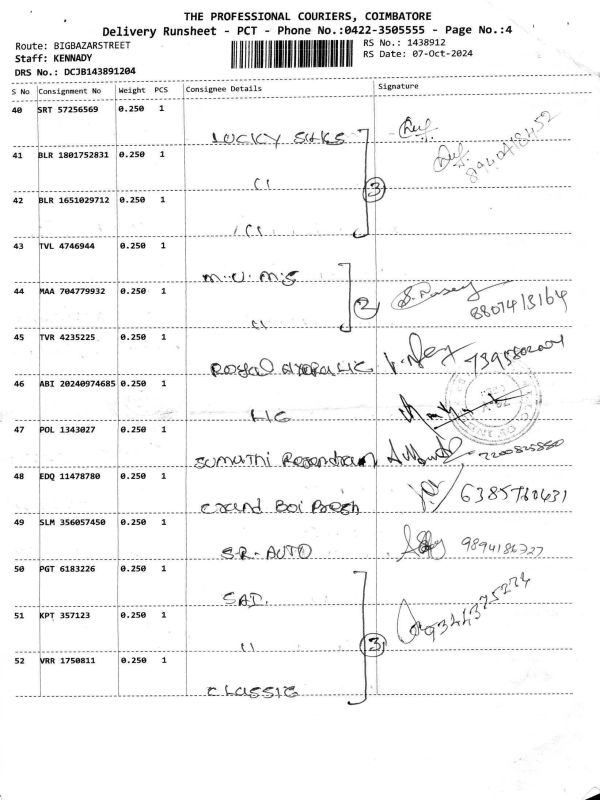 THE PROFESSIONAL COURIERS, COIMBATORE
Delivery Runsheet - PCT - Phone No.:0422-3505555 - Page No.:4
Route: BIGBAZARSTREET
RS No.: 1438912
Staff: KENNADY
RS Date: 07-Oct-2024
DRS No.: DCJB143891204
S No Consignment No Weight PCS Consignee Details Signature
40 SRT 57256569 0.250 1
LUCKY SILKS
41 BLR 1801752831 0.250 1
8940418452
11
3
42 BLR 1651029712 0.250 1
11
43 TVL 4746944 0.250 1
M.U.M.S
44 MAA 704779932 0.250 1
2
8807413164
11
45 TVR 4235225 0.250 1
Royal
7395802004
46 ABI 20240974685 0.250 1
LIC
47 POL 1343027 0.250 1
Sumathi Rajendran
7200825880
48 EDQ 11478780 0.250 1
6385760431
Grand Boi
49 SLM 356057450 0.250 1
S.R. AUTO
9894186727
50 PGT 6183226 0.250 1
SAI.
9344375274
51 KPT 357123 0.250 1
11
3
52 VRR 1750811 0.250 1
CLASSIC